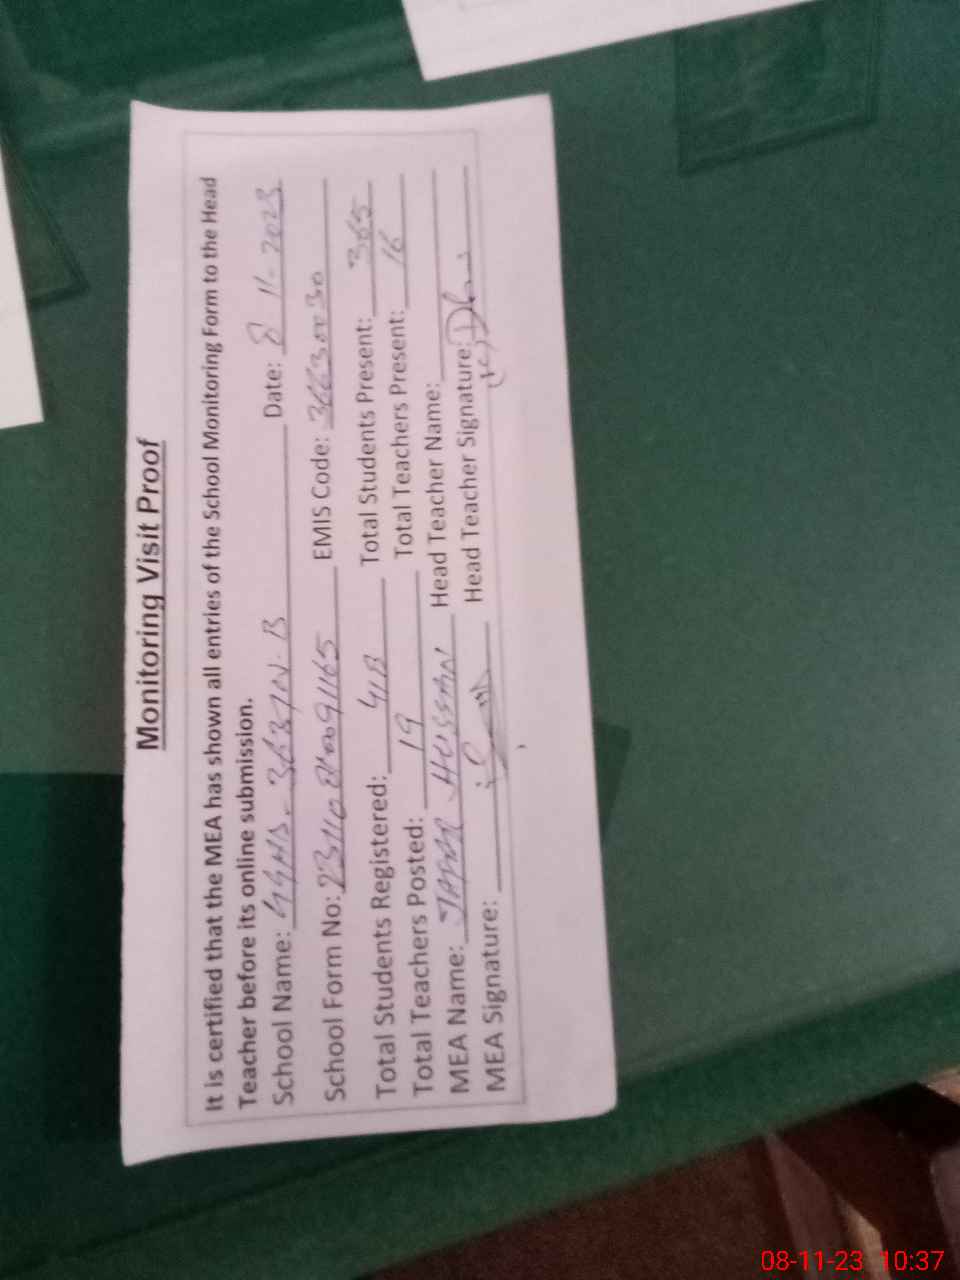 Monitoring Visit Proof
It is certified that the MEA has shown all entries of the School Monitoring Form to the Head
Teacher before its online submission.
School Name: Date: 8 11-2023
School Form No: EMIS Code: 36630030
Total Students Registered: 418 Total Students Present: 365
Total Teachers Posted: 19 Total Teachers Present: 16
MEA Name: JAFAR HUSSAIN Head Teacher Name:
MEA Signature: Head Teacher Signature:
08-11-23 10:37